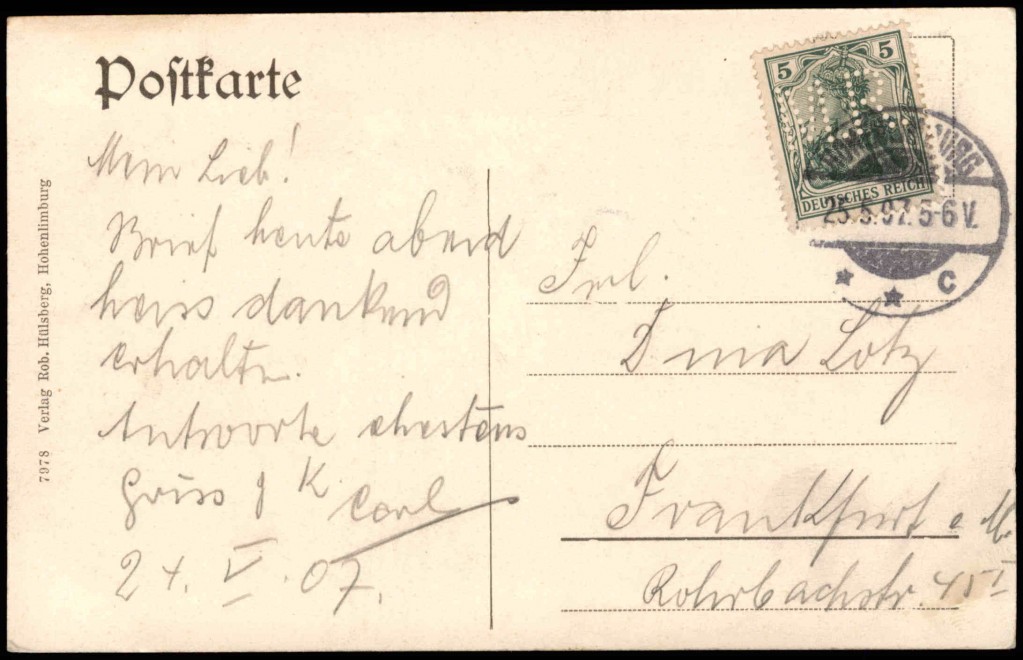 Postkarte
Mein Lieb!
Brief heute abend
heiss dankend
erhalten.
Antworte ehestens
Gruss & K Carl
24. V. 07.
7978 Verlag Rob. Hülsberg, Hohenlimburg
5 5
DEUTSCHES REICH
07. 5-6 V.
* * C
Frl.
Dina Lotz
Frankfurt a M.
Rohrbachstr. 45 I